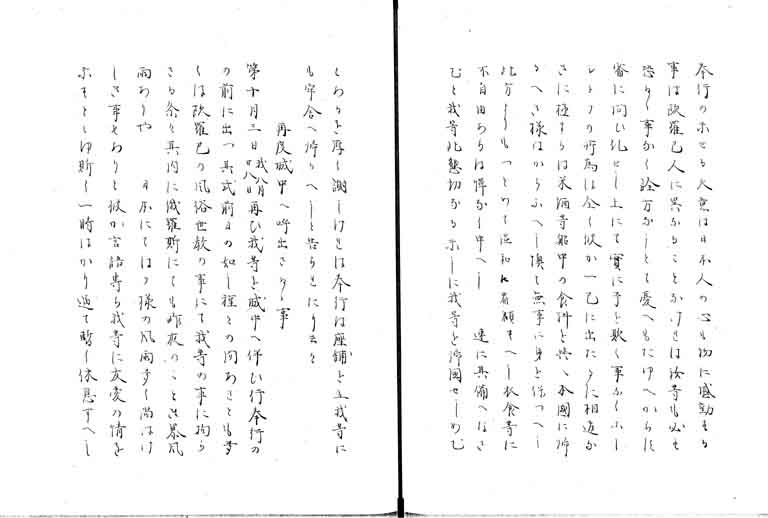 奉行のホせる大意は日本人の心も物に感動する
事は欧羅巴人に異かることかけれは汝等も必す
恐るゝ事かく論万かしとて憂へもたゆへからに
審に問ひ礼せし上にて實に予を欺く事かくホし
レトフの行為は全く彼か一己に出たるに相違か
さに極すらは米酒等船中の食料と與へ本國に帰
るへき様はからふへし換て無事に身と保つへし
此方しりもつとめて温和に看顧すへし衣食等に
不自由あらは憚かく申へし 速に具備へなさ
むと我等此懇切かるホしに我等を帰國せしめむ
とあるを厚く謝しけれは奉行は座鋪を立我等に
も牢舎へ帰りへしと告られにり云々
再度城中へ呼出さるゝ事
第十月三日我八月廿八日再ひ我等を城中へ伴ひ行奉行の
の前に出つ其式前日の如し種との問あさとも多
くは欧羅巴の風俗世教の事にて我等の事に拘ら
さる条々其内に俄羅斯にても昨夜のことき暴風
雨ありや 日本にてはヶ様の風雨多く尚はけ
しき事もありと彼か言語専ら我等に友愛の情を
ホすとしゆ斯く一時はかり過て暫く休息すへし